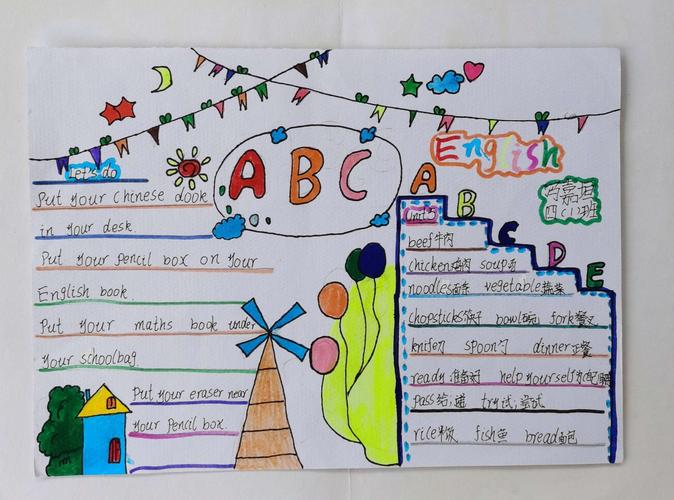 ABC
English
Let's do
Put Your Chinese dook
in Your desk.
Put Your pencil box on Your
English book.
Put Your maths book under
Your schoolbag.
Put Your eraser near
Your pencil box.
A
B
C
D
E
四(1)班
Unit 5
beef牛肉
chicken鸡肉 soup汤
noodles面条 vegetable蔬菜
chopsticks筷子 bowl碗 fork餐叉
knife刀 spoon勺 dinner正餐
ready准备好 help yourself
pass给;递 try试;尝试
rice米饭 fish鱼 bread面包